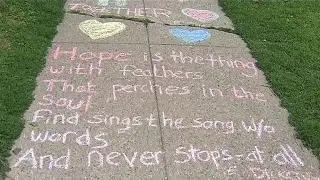 TOGETHER!
Hope is the thing
with feathers
That perches in the
Soul
And sings the song w/o
words
And never Stops - at all
E. Dickenson